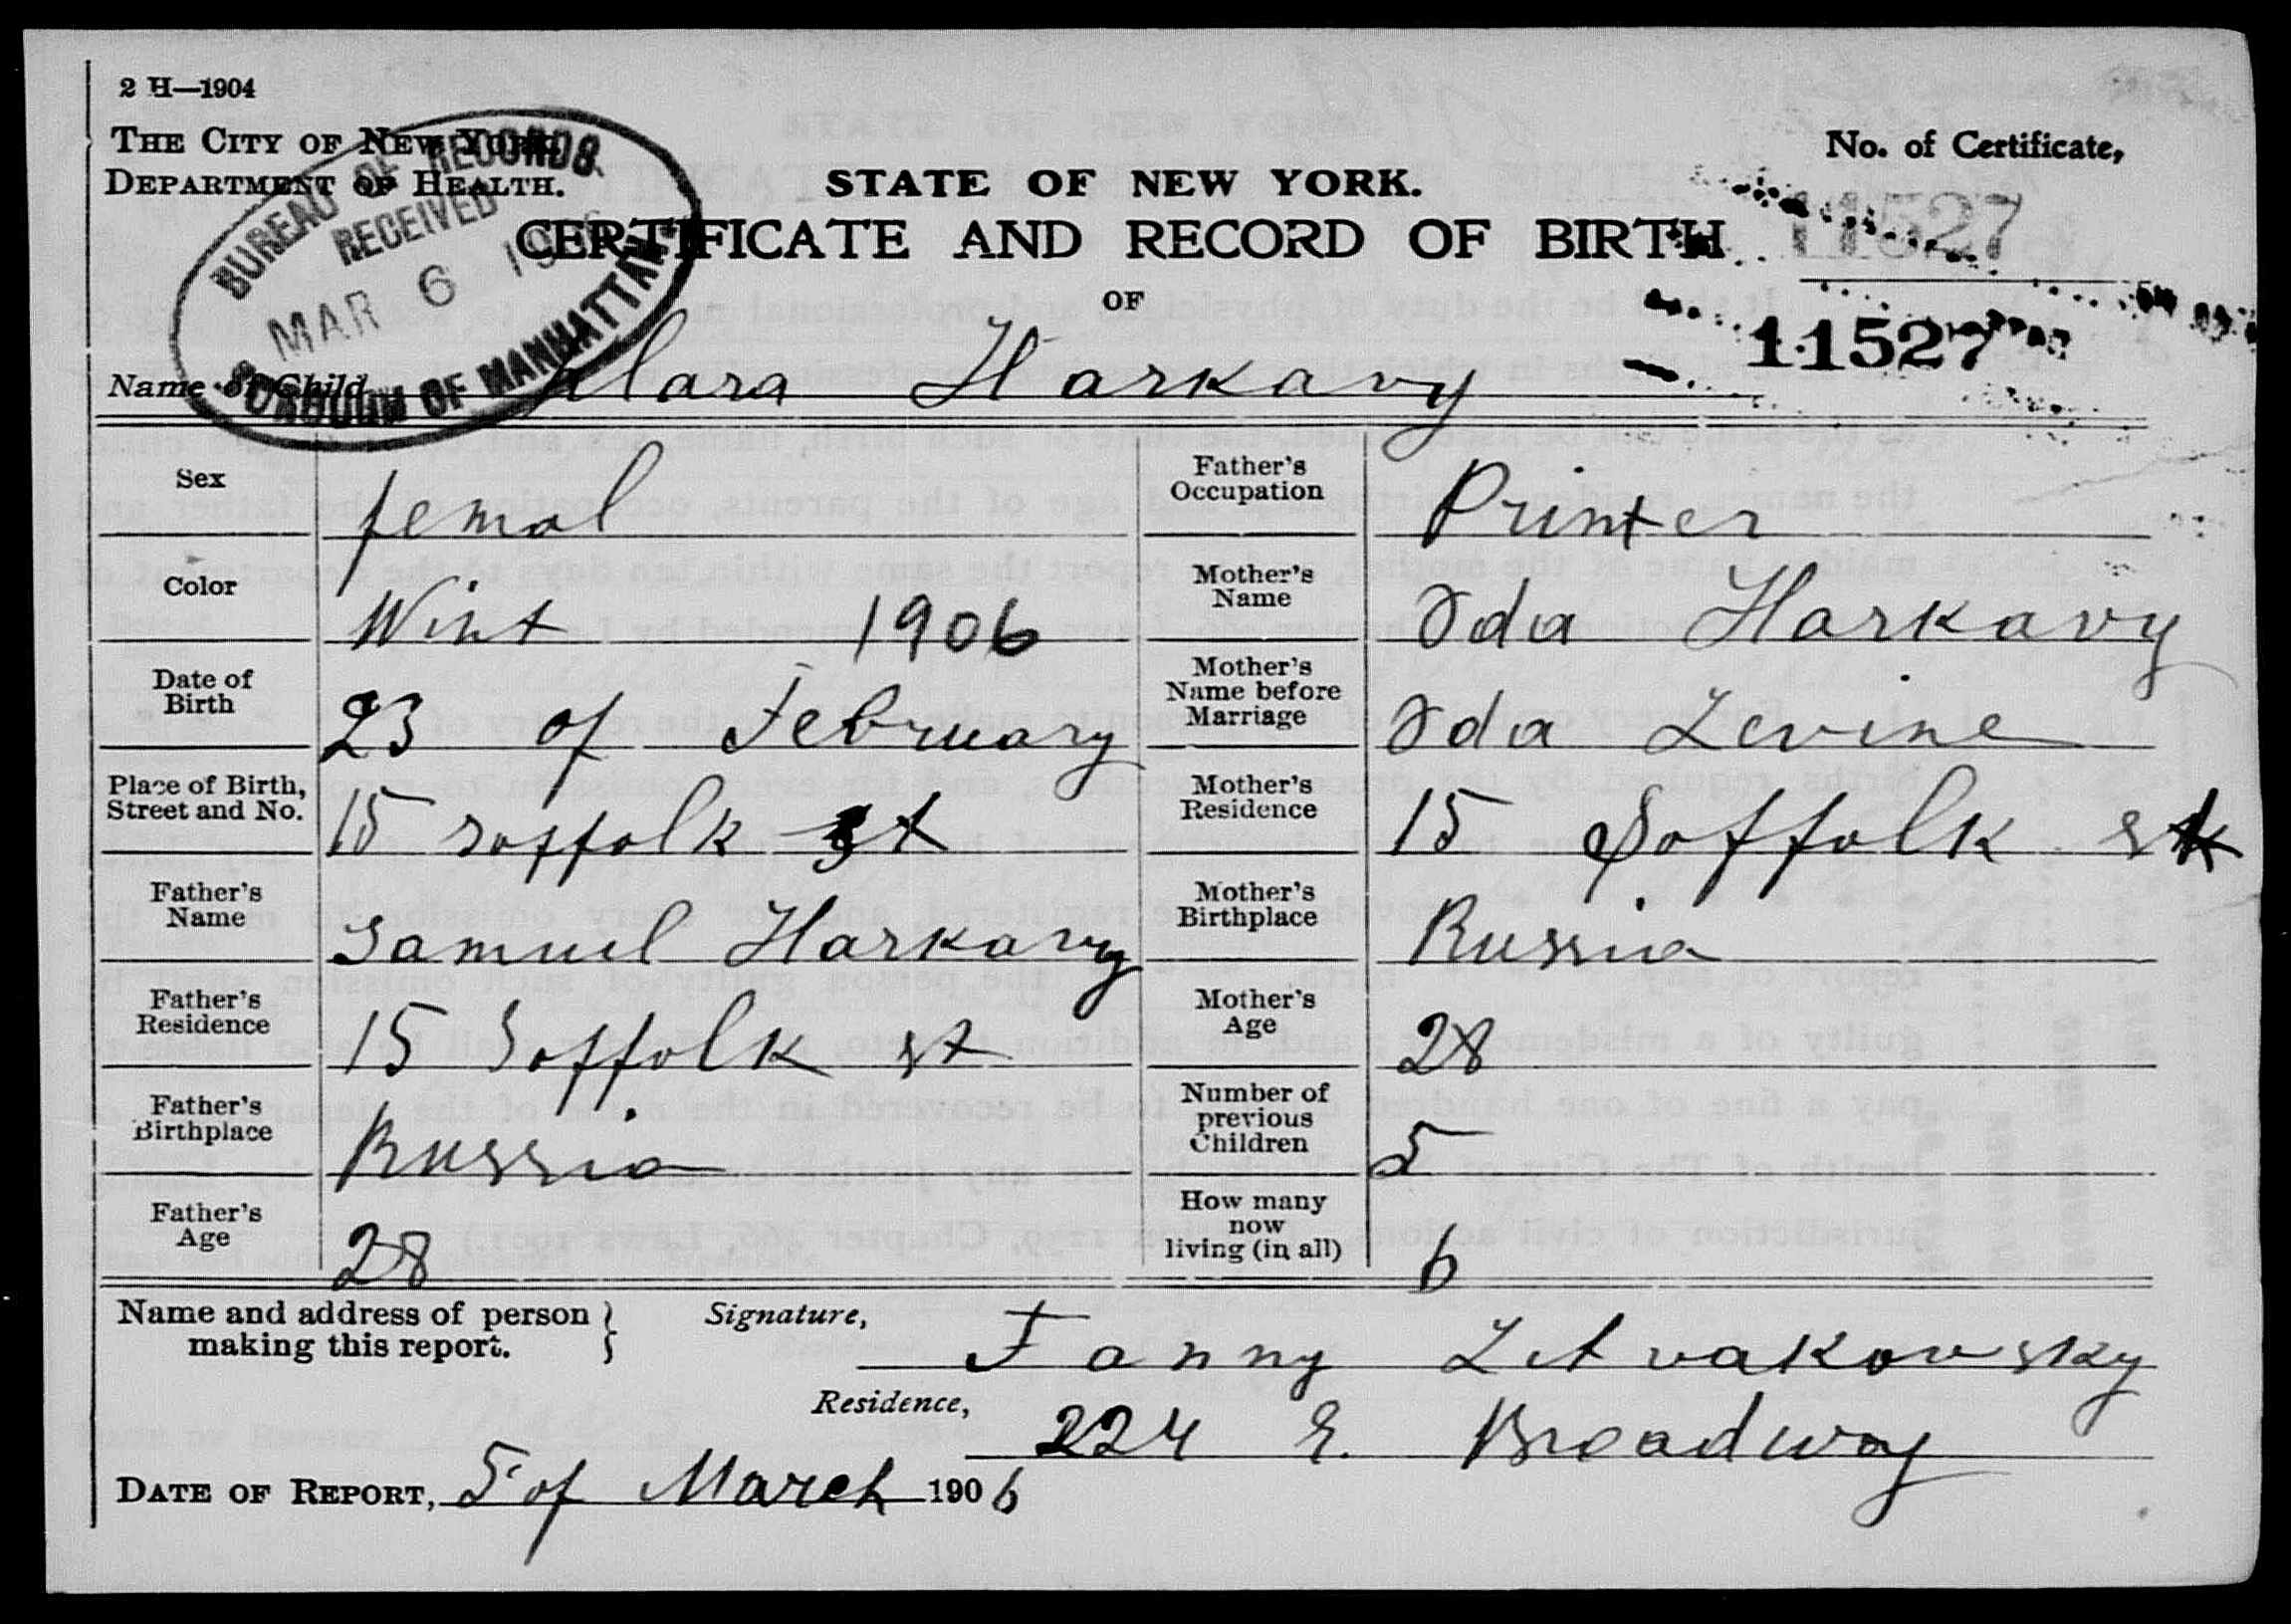 2 H—1904
THE CITY OF NEW YORK
DEPARTMENT OF HEALTH.
BUREAU OF RECORDS.
RECEIVED
MAR 6 1906
BOROUGH OF MANHATTAN
No. of Certificate,
11527
11527
STATE OF NEW YORK.
CERTIFICATE AND RECORD OF BIRTH
OF
Name of Child Clara Harkavy
Sex femal
Color Wint 1906
Date of Birth 23 of February
Place of Birth, Street and No. 15 soffolk st
Father's Name Samuel Harkavy
Father's Residence 15 Soffolk st
Father's Birthplace Russia
Father's Age 28
Father's Occupation Printer
Mother's Name Ida Harkavy
Mother's Name before Marriage Ida Levine
Mother's Residence 15 Soffolk st
Mother's Birthplace Russia
Mother's Age 28
Number of previous Children 5
How many now living (in all) 6
Name and address of person making this report.
Signature, Fanny Litvakowsky
Residence, 224 E. Broadway
DATE OF REPORT, 5 of March 1906